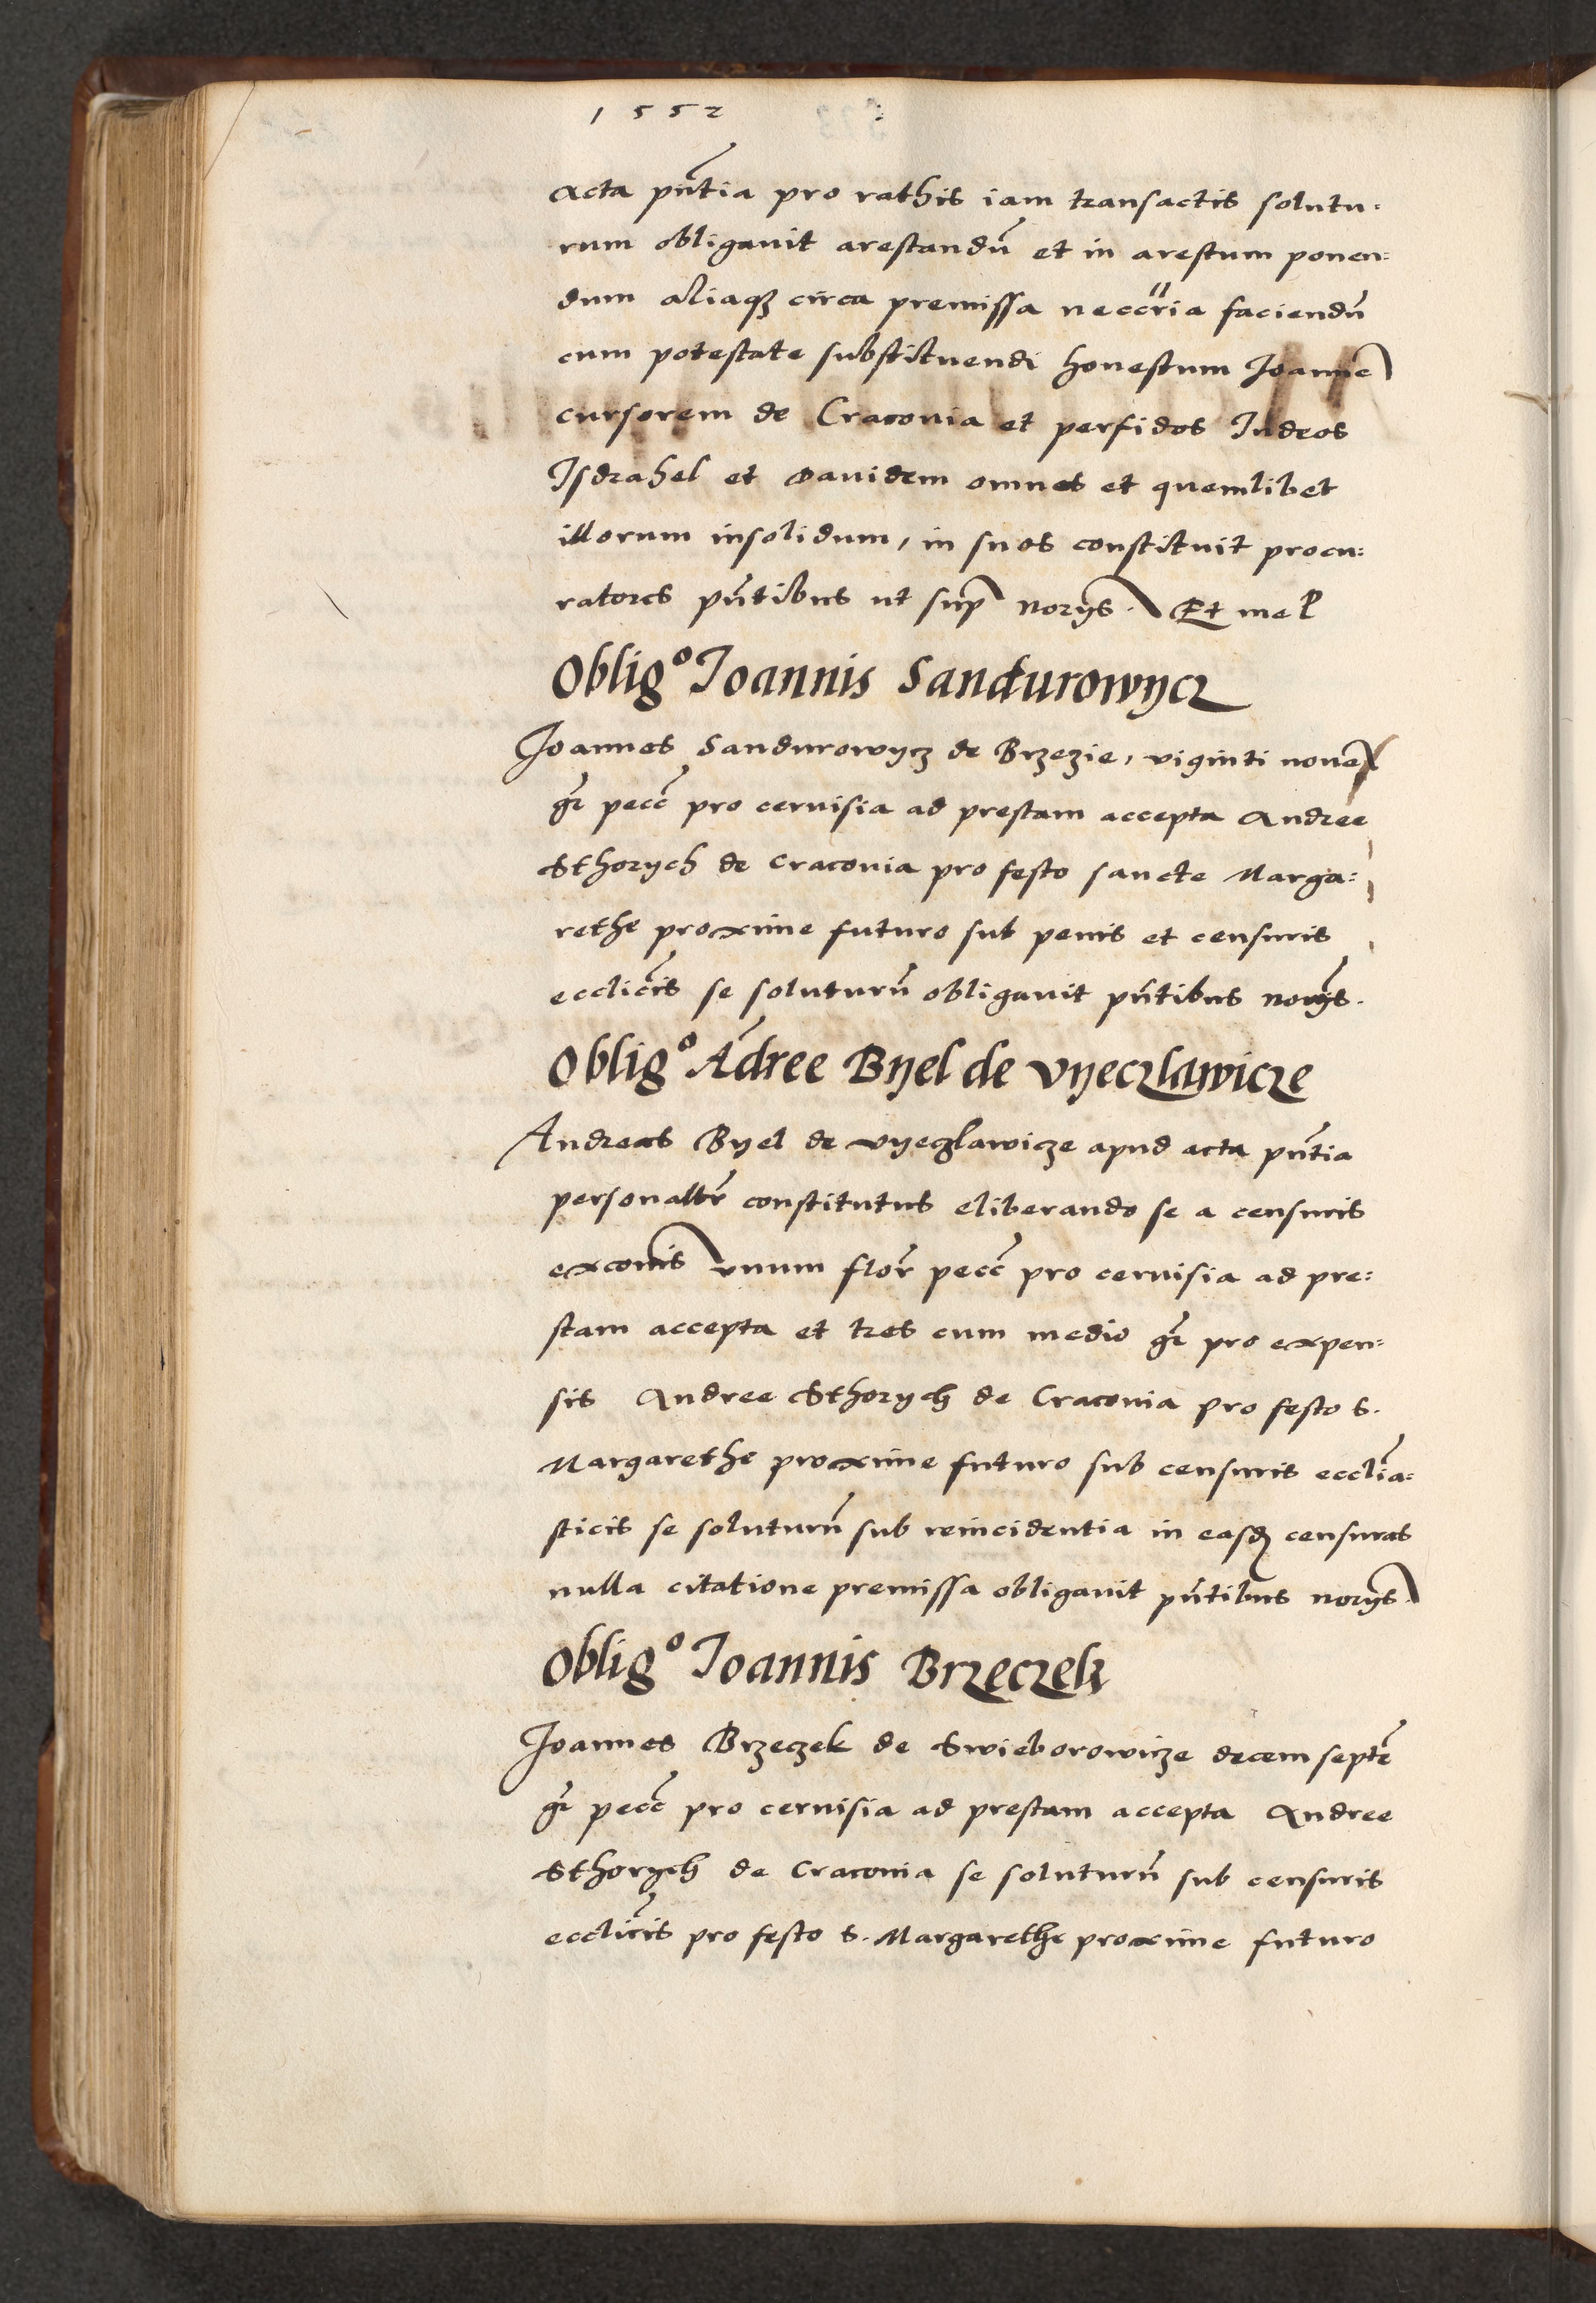 1552
Acta pn̄tia pro rathis iam transactis solutu-
rum obligauit arestandū et in arestum ponen:
dum aliaqȝ circa premissa neccr̄ia faciendū
cum potestate substituendi honestum Joannē
cursorem de Cracouia et perfidos Judeos
Isdrahel et Dauidem omnes et quemlibet
illorum insolidum, in suos constituit procu:
ratores pn̄tibus ut sup̄ norijs. Et me
Obligᵒ Ioannis Sandurowycz
Joannes Sandurowycz de Brzezie, viginti nouē
gr̄ pecc̄ pro ceruisia ad prestam accepta Andree
Sthorych de Cracouia pro festo sancte Marga:
rethe proxime futuro sub penis et censuris
ecclicīs se soluturū obligauit pn̄tibus norijs.
Obligᵒ Ādree Byel de Vyeczlawicze
Andreas Byel de Vyeczlawicze apud acta pn̄tia
personaltr̄ constitutus eliberando se a censuris
excōnis vnum flor̄ pecc̄ pro ceruisia ad pre:
stam accepta et tres cum medio gr̄ pro expen:
sis Andree Sthorych de Cracouia pro festo S.
Margarethe proxime futuro sub censuris ecclīa:
sticis se soluturū sub reincidentia in easd̄ censuras
nulla citatione premissa obligauit pn̄tibus norijs.
Obligᵒ Ioannis Brzeczek
Joannes Brzeczek de Swieborowicze decem septē
gr̄ pecc̄ pro ceruisia ad prestam accepta Andree
Sthorych de Cracouia se soluturū sub censuris
ecclicīs pro festo S. Margarethe proxime futuro